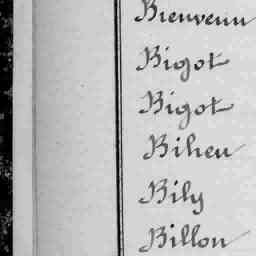 Bienvenu
Bigot
Bigot
Biheu
Bily
Billon